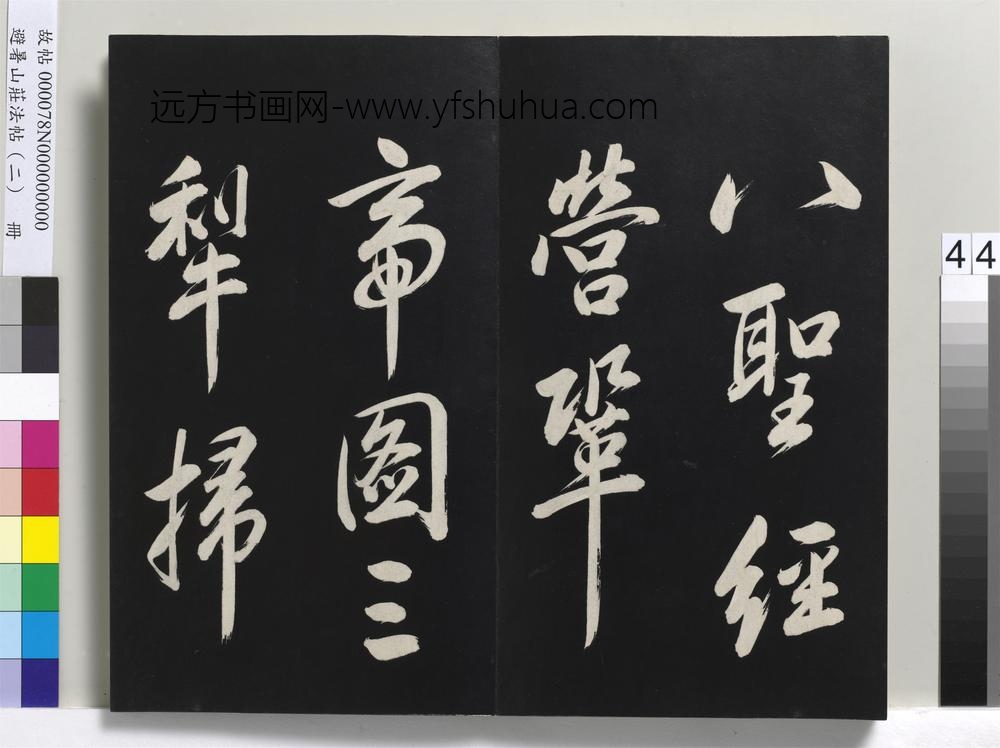 远方书画网-www.yfshuhua.com
八聖經
營鞏
帝圖三
犁掃
故帖 000078N000000000
避暑山莊法帖(二) 冊
44